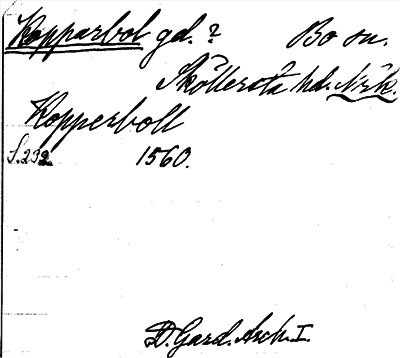 Kopparbol gd.? Bo sn.
Sköllersta hd. Nrk.
Kopperboll
S. 232 1560.
D. Gard. Arch. I.